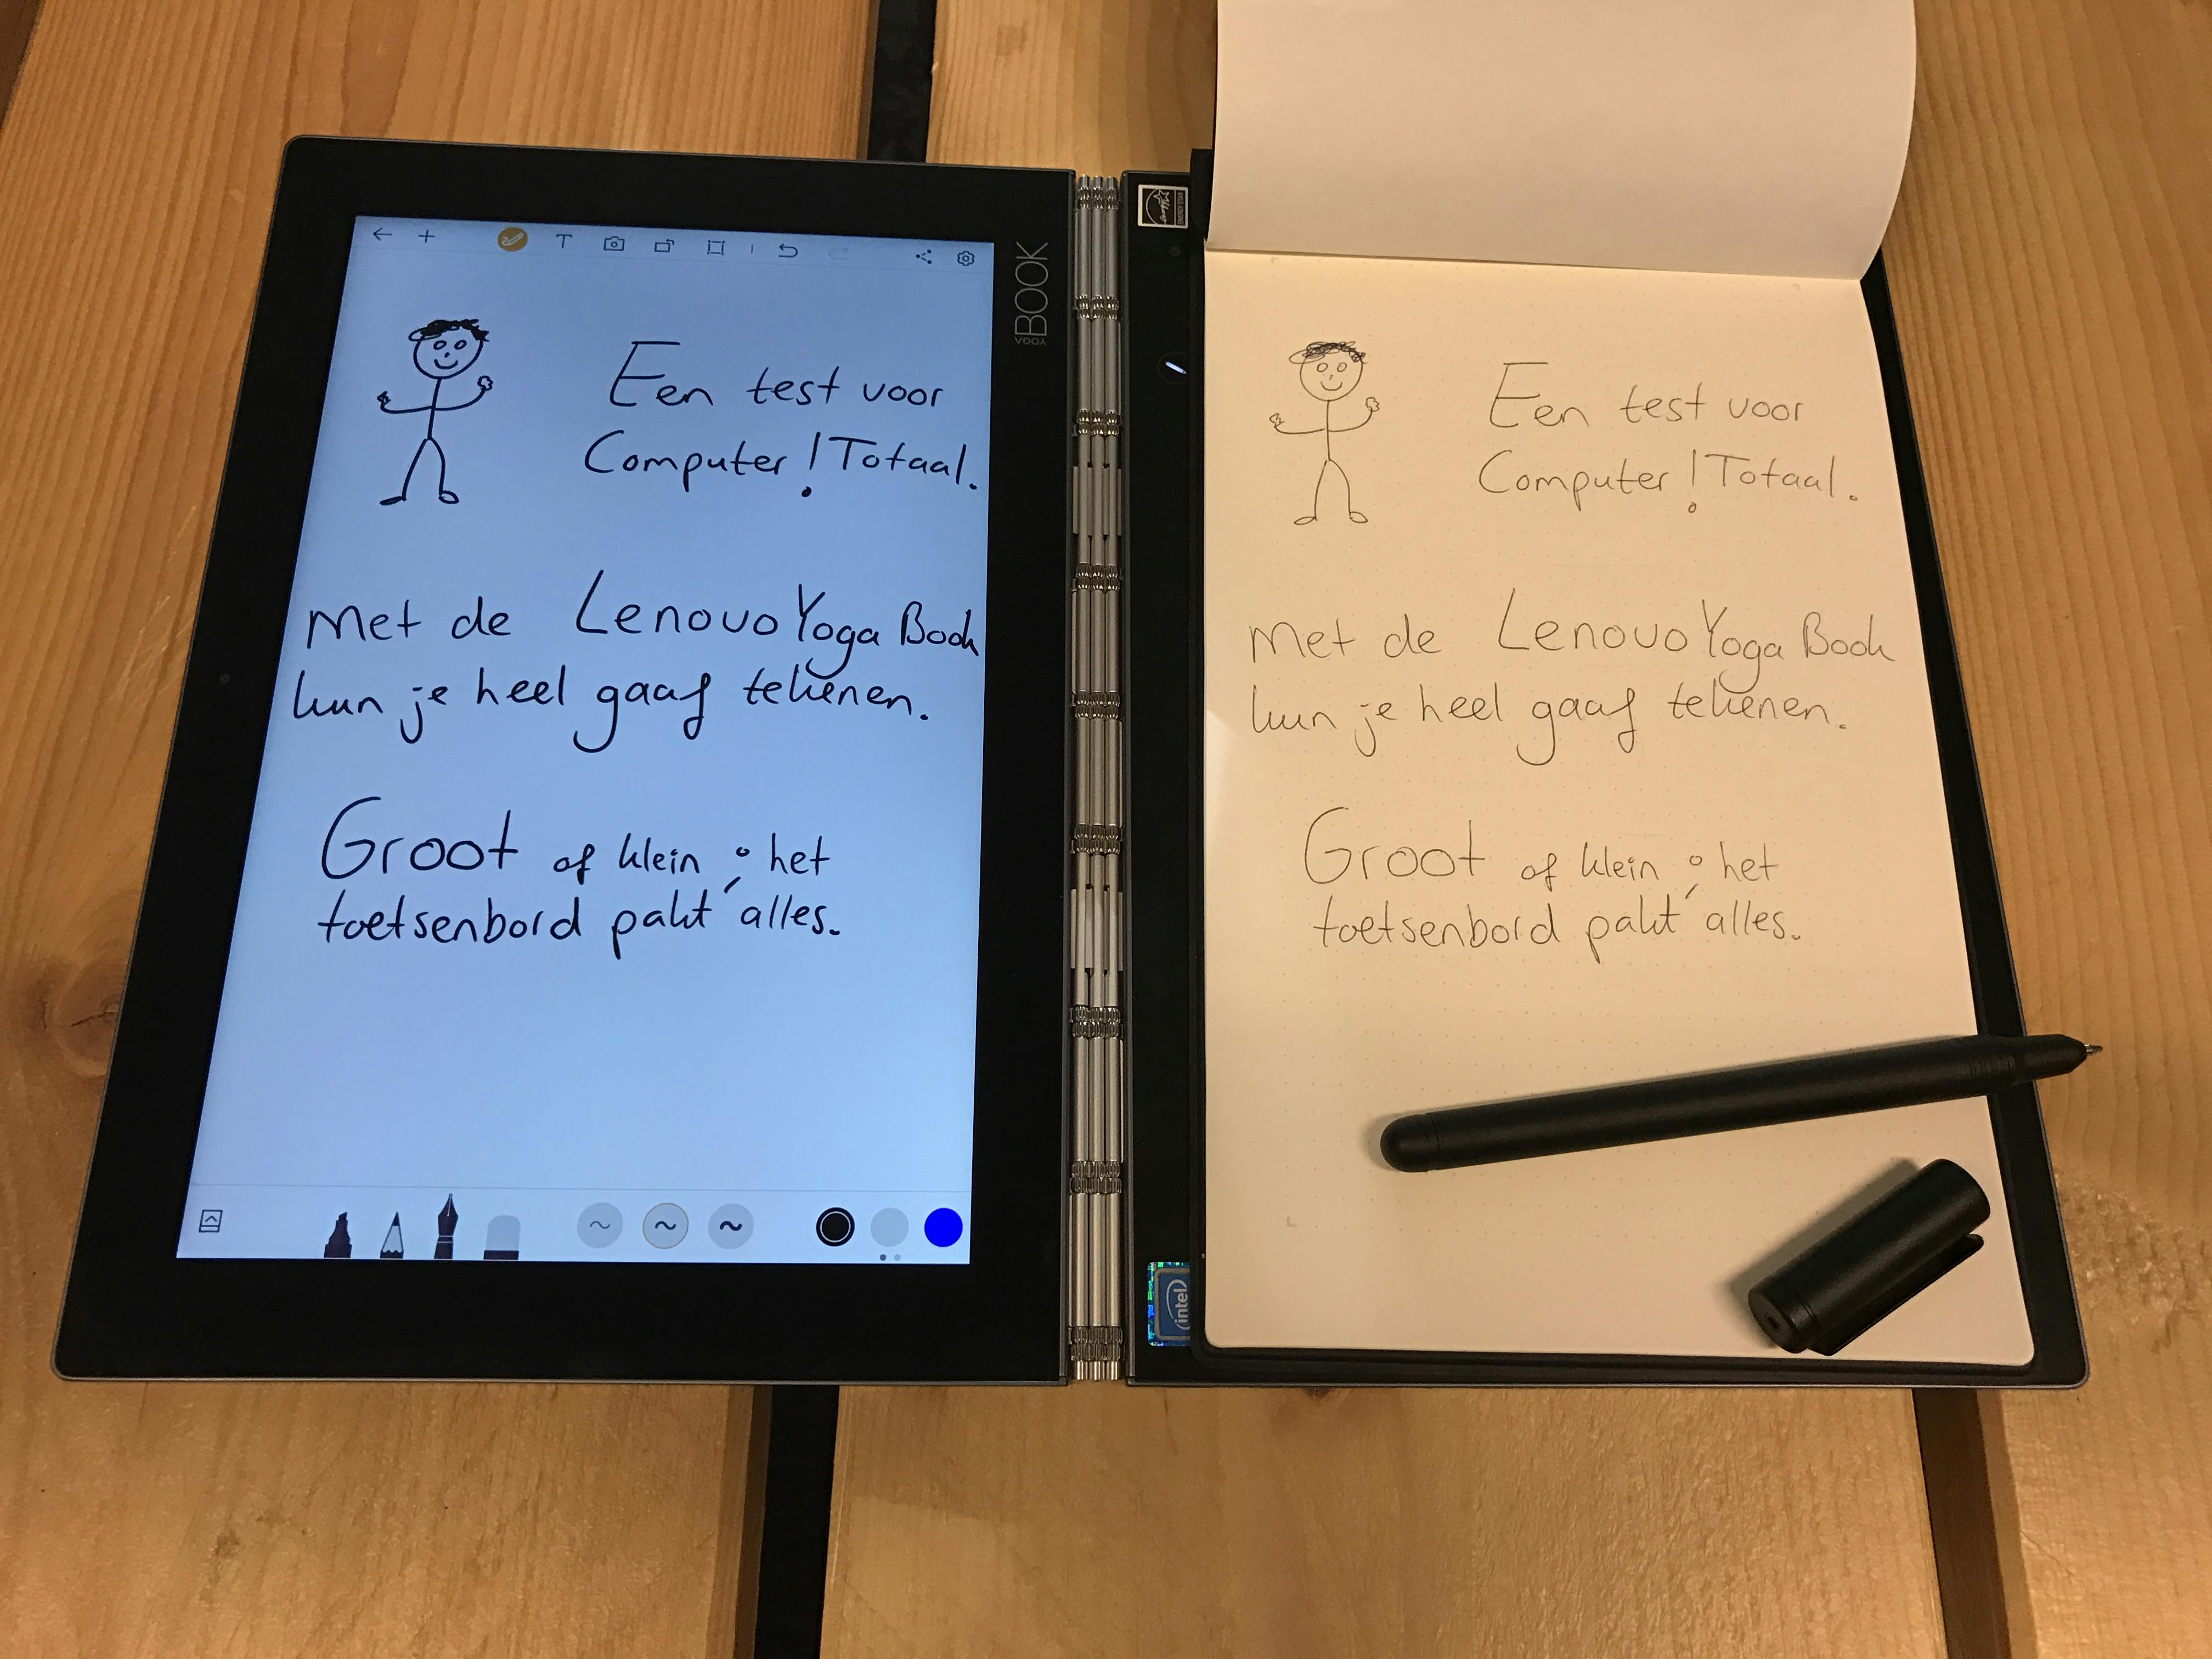 Een test voor
Computer! Totaal.
Met de Lenovo Yoga Book
kun je heel gaaf tekenen.
Groot of klein; het
toetsenbord pakt alles.
YOGA BOOK
T
Een test voor
Computer! Totaal.
Met de Lenovo Yoga Book
kun je heel gaaf tekenen.
Groot of klein; het
toetsenbord pakt alles.
intel